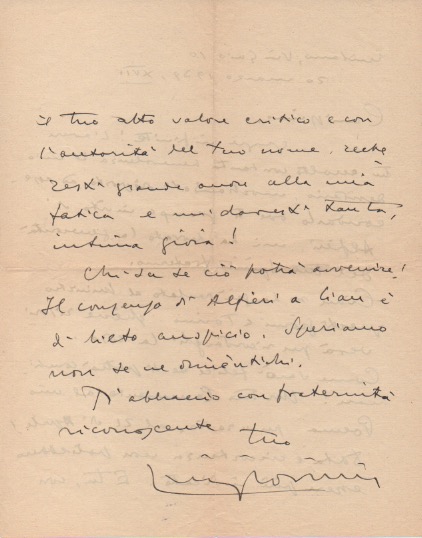 il tuo alto valore critico e con
l'autorità del tuo nome, reche
resti grande onore alla mia
fatica e mi daresti tanta,
intima gioia!
Chi sa se ciò potrà avvenire!
Il consenso di Alfieri a Cian è
di lieto auspicio. Speriamo
non se ne dimentichi.
T'abbraccio con fraternità
riconoscente tuo